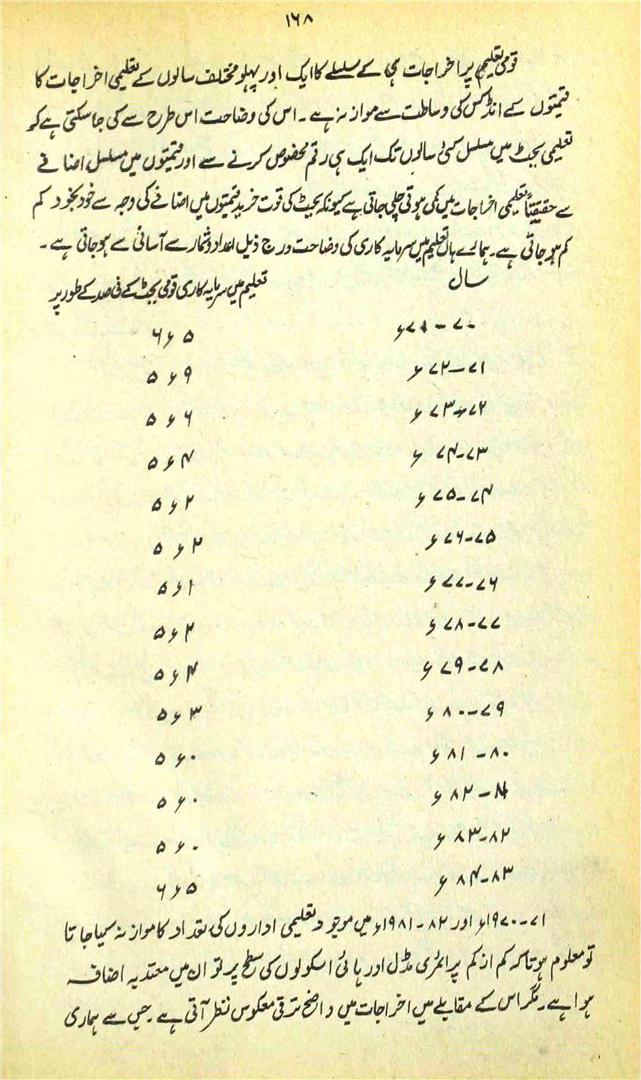 ۱۶۸
قومی تعلیمی پر اخراجات ہی کے سلسلے کا ایک اور پہلو مختلف سالوں کے تعلیمی اخراجات کا
قیمتوں کے انڈکس کی وساطت سے موازنہ ہے ۔ اس کی وضاحت اس طرح سے کی جا سکتی ہے کہ
تعلیمی بجٹ میں مسلسل کئی سالوں تک ایک ہی رقم مخصوص کرنے سے اور قیمتوں میں مسلسل اضافے
سے حقیقتاً تعلیمی اخراجات میں کمی ہوتی چلی جاتی ہے کیونکہ بجٹ کی قوت خرید قیمتوں میں اضافے کی وجہ سے خود بخود کم
کم ہو جاتی ہے ۔ ہمارے ہاں تعلیم میں سرمایہ کاری کی وضاحت درج ذیل اعداد و شمار سے آسانی سے ہو جاتی ہے ۔
سال تعلیم میں سرمایہ کاری قومی بجٹ کے فی صد کے طور پر
۷۰-۷۱ء ۶٫۵
۷۱-۷۲ء ۵٫۹
۷۲-۷۳ء ۵٫۶
۷۳-۷۴ء ۵٫۴
۷۴-۷۵ء ۵٫۲
۷۵-۷۶ء ۵٫۲
۷۶-۷۷ء ۵٫۱
۷۷-۷۸ء ۵٫۲
۷۸-۷۹ء ۵٫۴
۷۹-۸۰ء ۵٫۳
۸۰-۸۱ء ۵٫۰
۸۱-۸۲ء ۵٫۰
۸۲-۸۳ء ۵٫۰
۸۳-۸۴ء ۶٫۵
۷۱-۱۹۷۰ء اور ۸۲-۱۹۸۱ء میں موجود تعلیمی اداروں کی تعداد کا موازنہ کیا جاتا
تو معلوم ہوتا کہ کم از کم پرائمری مڈل اور ہائی اسکولوں کی سطح پر تو ان میں معتدبہ اضافہ
ہوا ہے ۔ مگر اس کے مقابلے میں اخراجات میں واضح ترقی معکوس نظر آتی ہے جس سے ہماری